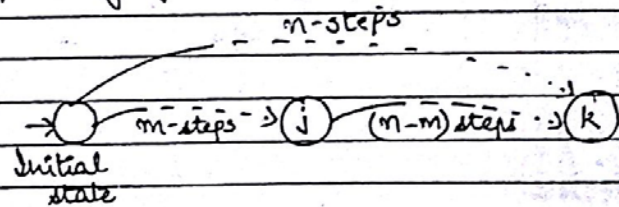 n-steps
m-steps j (n-m) steps k
Initial
state